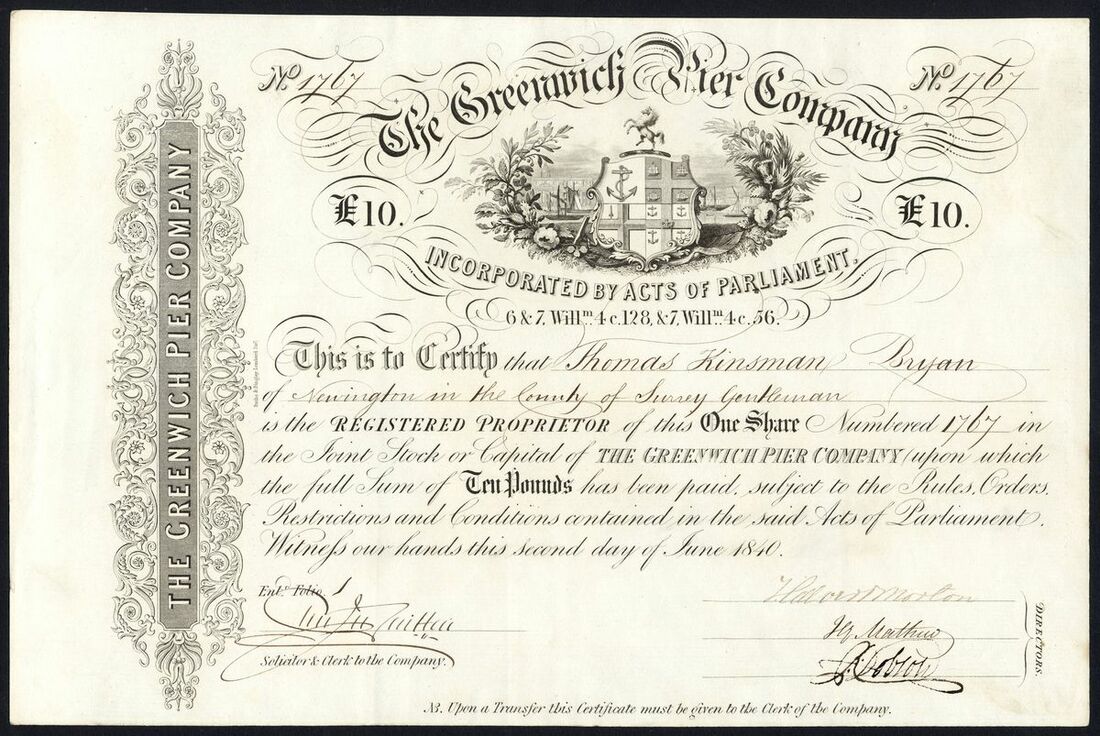 No. 1767
The Greenwich Pier Company
No. 1767
£10.
£10.
INCORPORATED BY ACTS OF PARLIAMENT,
6 & 7, Willm. 4 c. 128, & 7, Willm. 4 c. 56.
THE GREENWICH PIER COMPANY
This is to Certify that Thomas Kinsman Bryan
of Newington in the County of Surrey Gentleman
is the REGISTERED PROPRIETOR of this One Share Numbered 1767 in
the Joint Stock or Capital of THE GREENWICH PIER COMPANY (upon which
the full Sum of Ten Pounds has been paid, subject to the Rules, Orders,
Restrictions and Conditions contained in the said Acts of Parliament.
Witness our hands this second day of June 1840.
Entd. Folio 1
Solicitor & Clerk to the Company.
Morton
Mathew
DIRECTORS.
NB. Upon a Transfer this Certificate must be given to the Clerk of the Company.